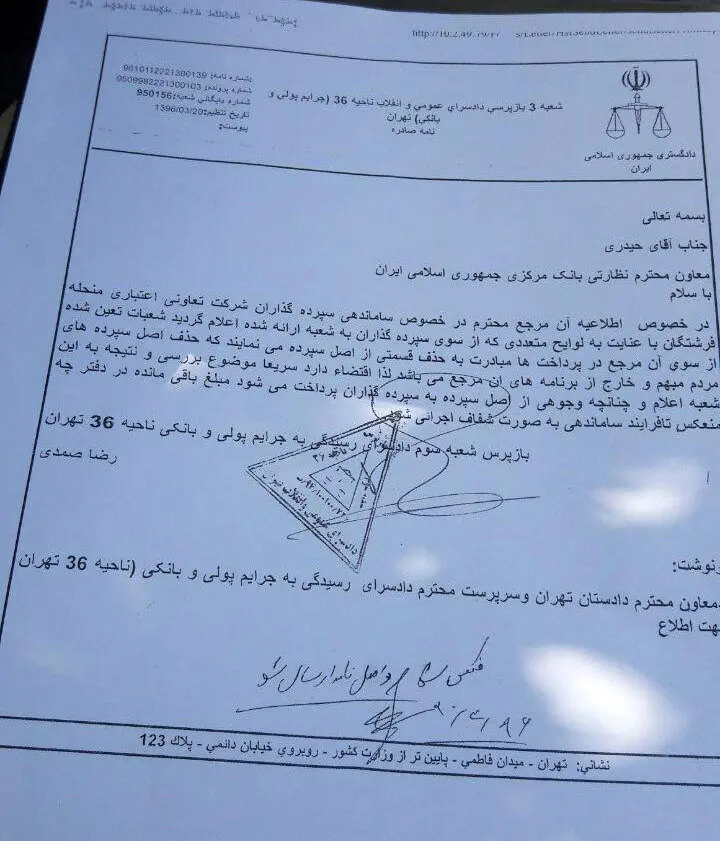 http://10.2.49.19/
شماره نامه: 9610112221300139
شماره پرونده: 9509982221300103
شماره بایگانی شعبه: 950156
تاریخ تنظیم: 1396/03/20
پیوست:
شعبه 3 بازپرسي دادسراي عمومي و انقلاب ناحیه 36 (جرایم پولی و
بانکي) تهران
نامه صادره
دادگستری جمهوری اسلامی
ایران
بسمه تعالی
جناب آقای حیدری
معاون محترم نظارتی بانک مرکزی جمهوری اسلامی ایران
با سلام
در خصوص اطلاعیه آن مرجع محترم در خصوص ساماندهی سپرده گذاران شرکت تعاونی اعتباری منحله
فرشتگان با عنایت به لوایح متعددی که از سوی سپرده گذاران به شعبه ارائه شده اعلام گردید شعبات تعین شده
از سوی آن مرجع در پرداخت ها مبادرت به حذف قسمتی از اصل سپرده می نمایند که حذف اصل سپرده های
مردم مبهم و خارج از برنامه های آن مرجع می باشد لذا اقتضاء دارد سریعا موضوع بررسی و نتیجه به این
شعبه اعلام و چنانچه وجوهی از اصل سپرده به سپرده گذاران پرداخت می شود مبلغ باقی مانده در دفتر چه
منعکس تافرایند ساماندهی به صورت شفاف اجرائی شود
بازپرس شعبه سوم دادسرای رسیدگی به جرایم پولی و بانکی ناحیه 36 تهران
رضا صمدی
دادسرای عمومی و انقلاب تهران
رونوشت:
معاون محترم دادستان تهران وسرپرست محترم دادسرای رسیدگی به جرایم پولی و بانکی (ناحیه 36 تهران
جهت اطلاع
فکس و اصل نامه ارسال شود
نشاني: تهران - میدان فاطمي - پایین تر از وزارت کشور - روبروي خیابان دائمي - پلاك 123